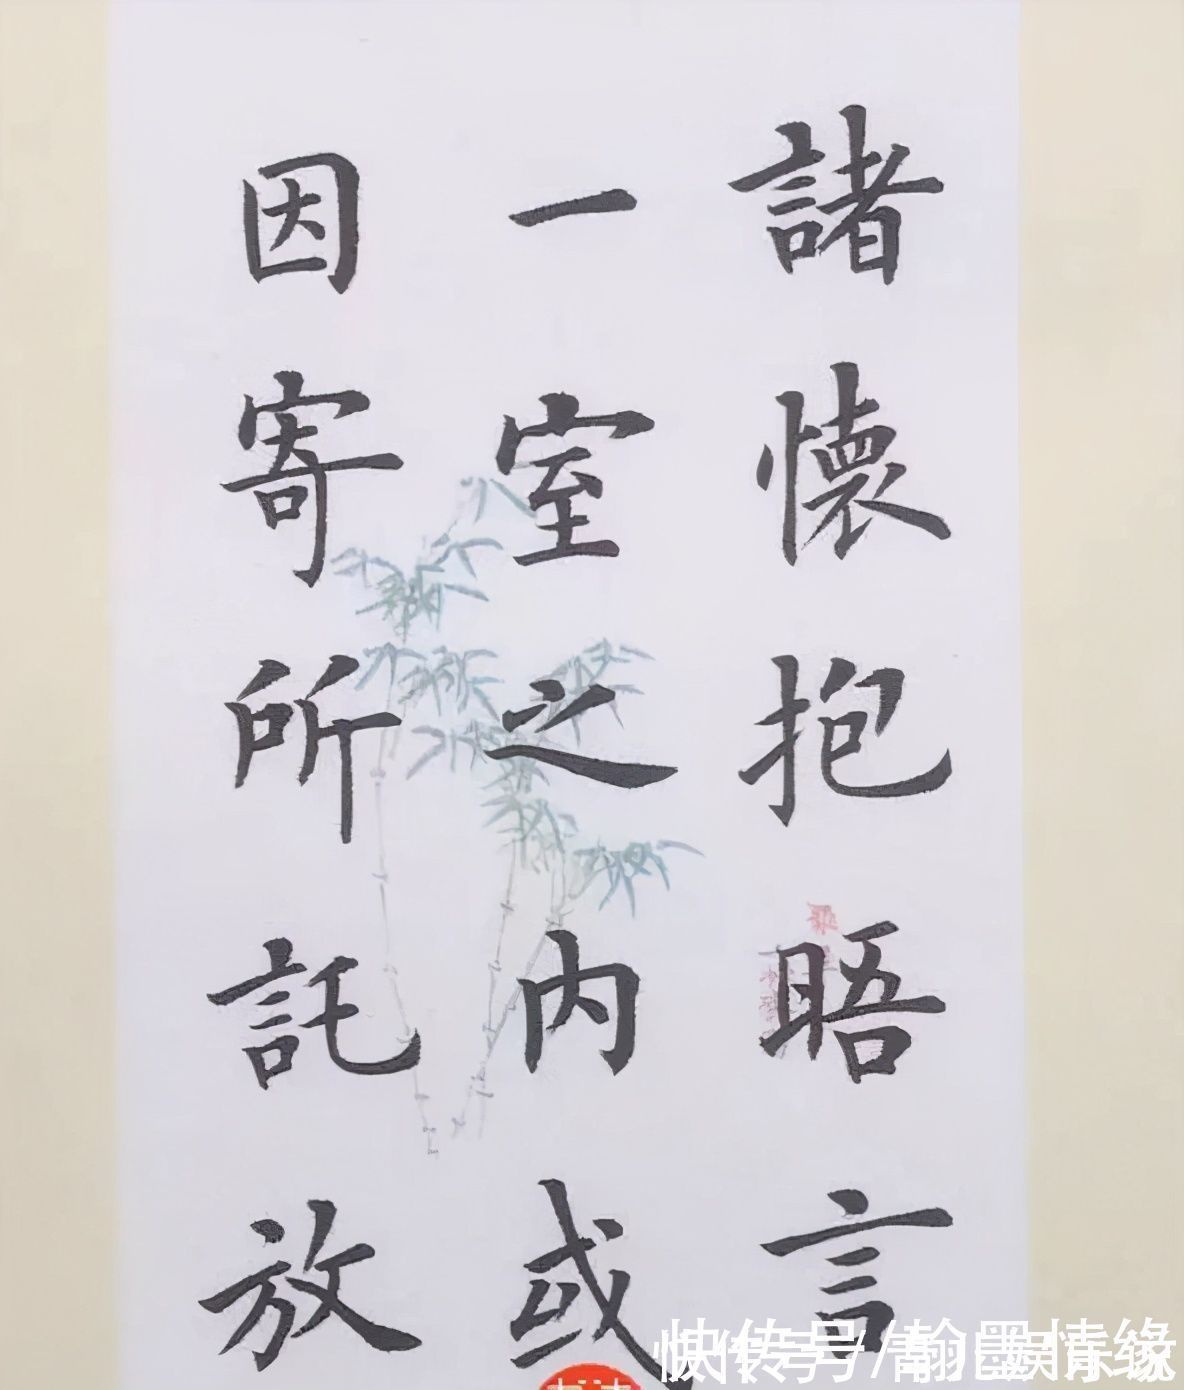 諸懷抱晤言
一室之内或
因寄所託放
快传号/翰墨情缘